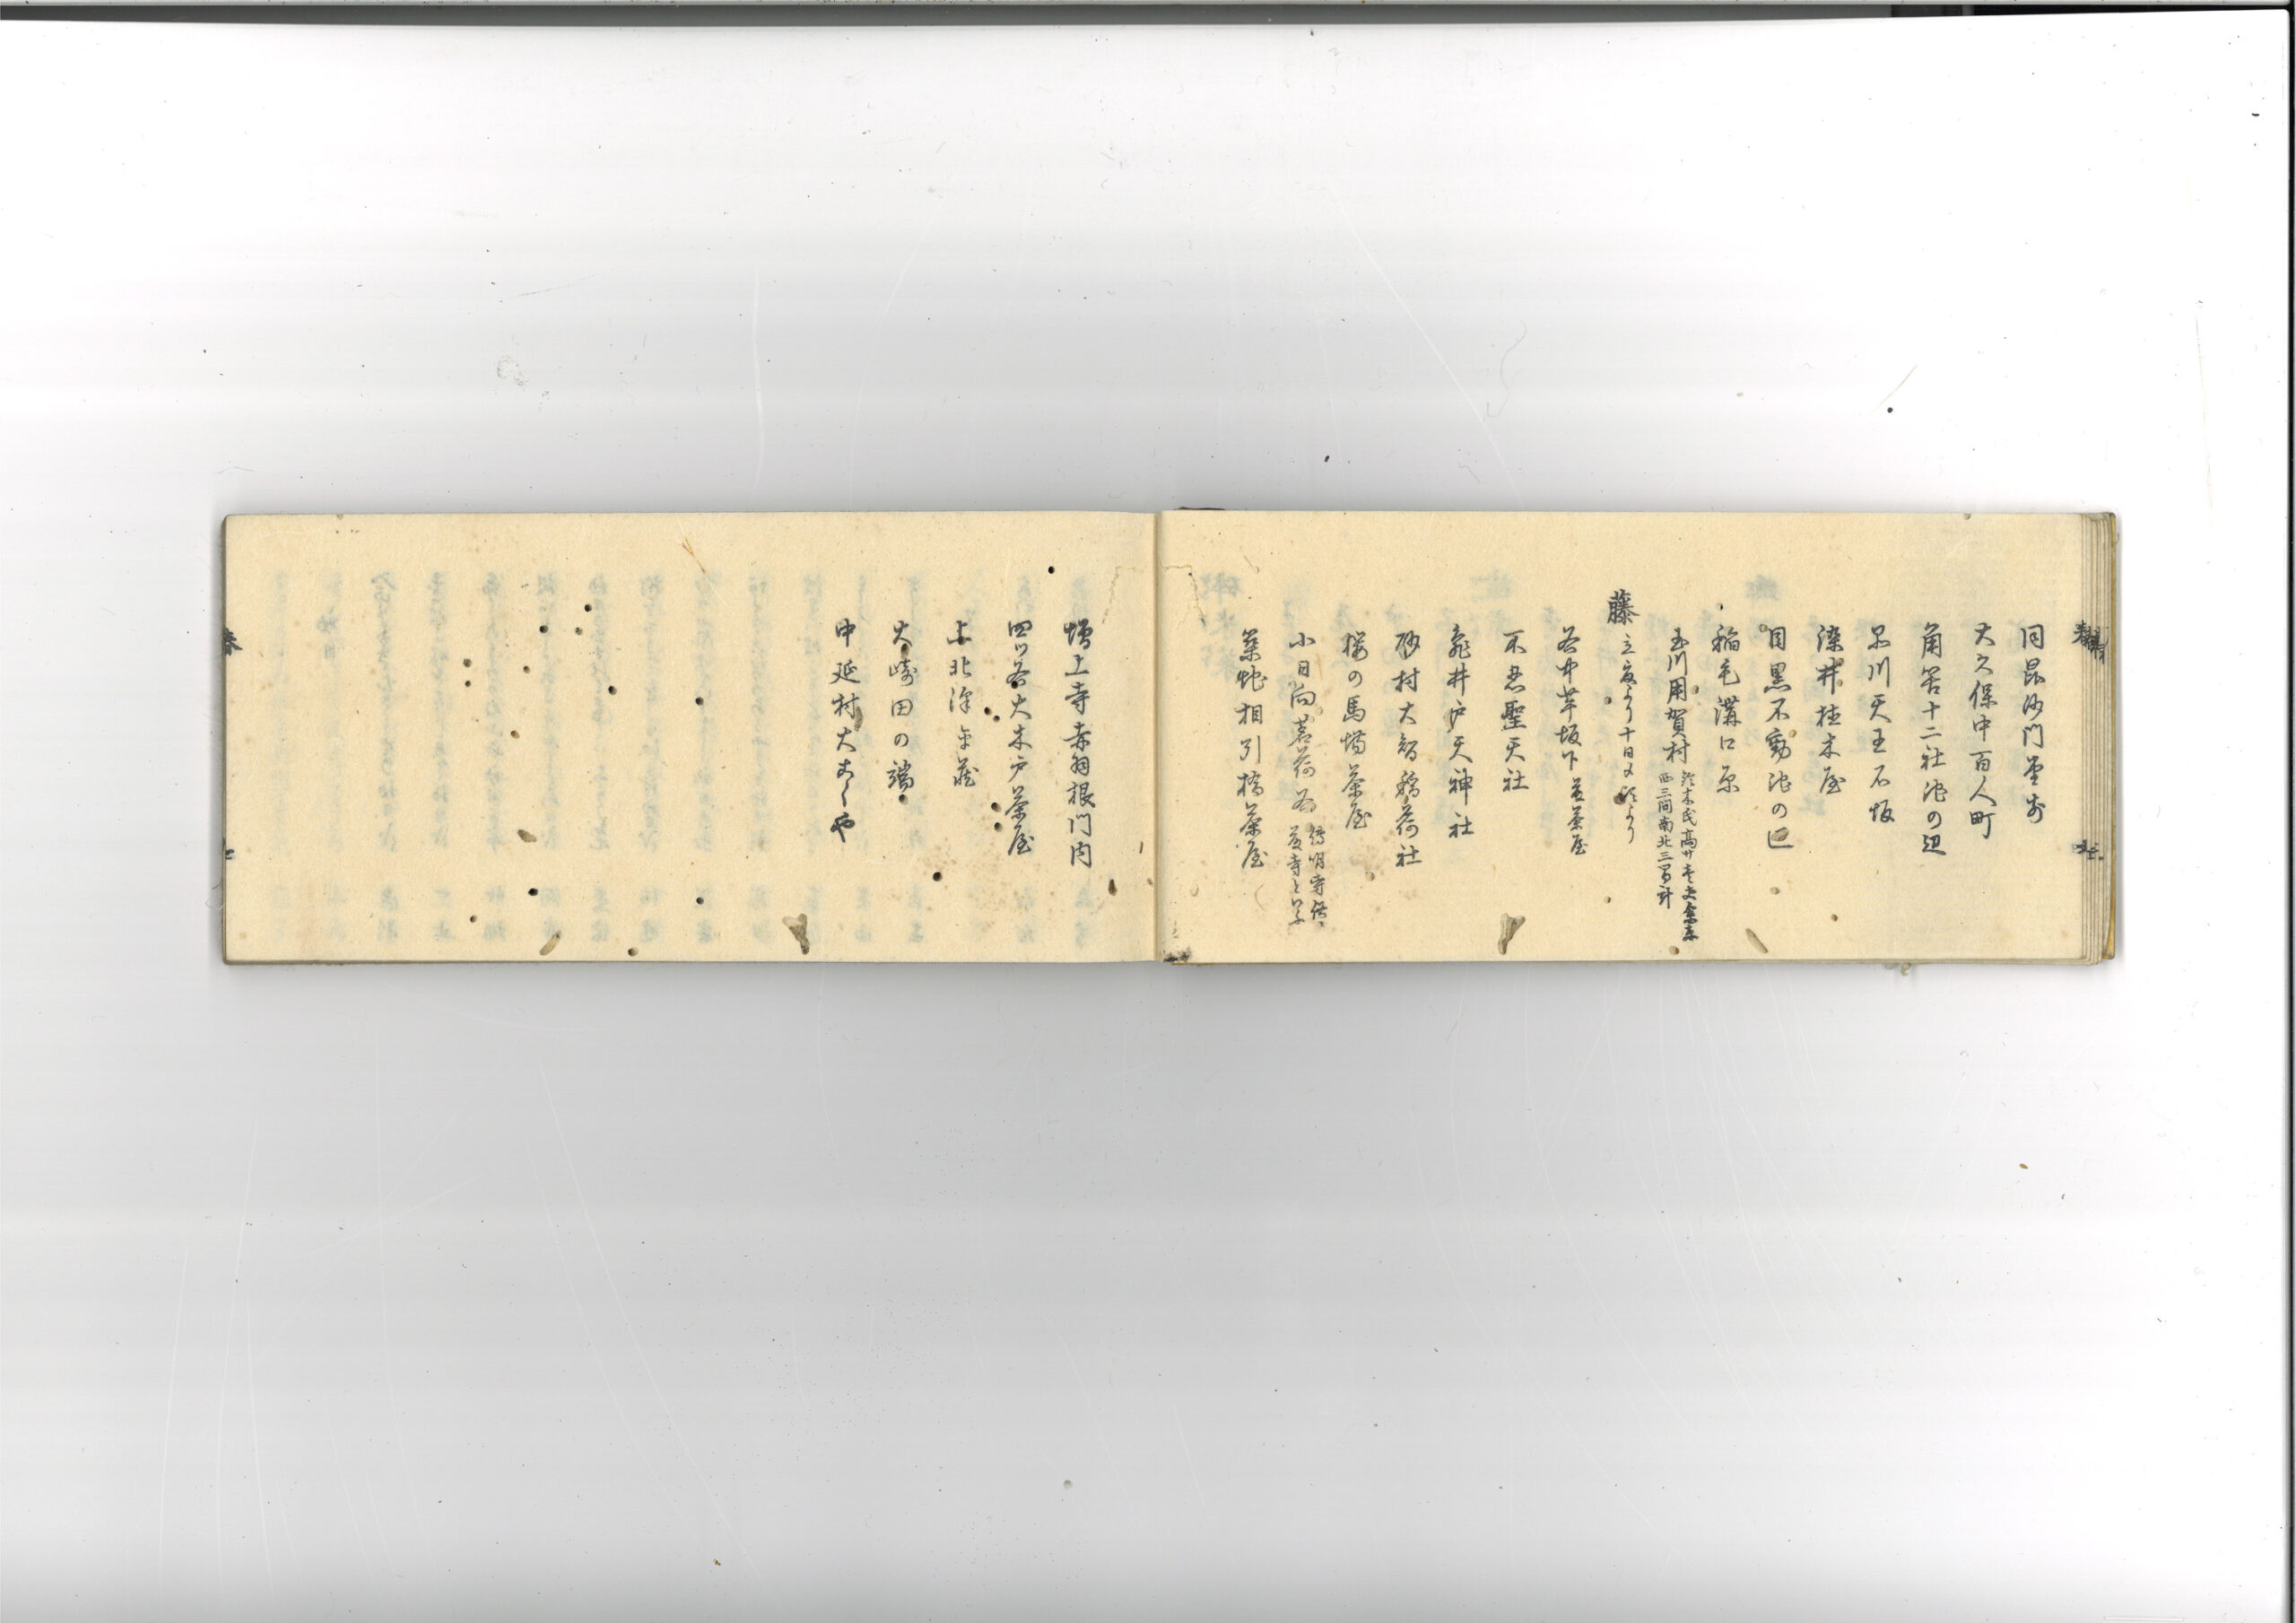 同毘沙門堂前
大久保中百人町
角筈十二社池の辺
品川天王石坂
染井植木屋
目黒不動池の辺
稲毛溝口原
玉川用賀村
西三間南北三間計
藤
立夏より十日め頃より
谷中芋坂下
不忍聖天社
亀井戸天神社
砂村大智稲荷社
桜の馬場茶屋
小日向茗荷谷
藤寺と号
薬蛇相引橋茶屋
増上寺赤羽根門内
四ツ谷大木戸茶屋
上北沢
大崎田の端
中延村大
春
七